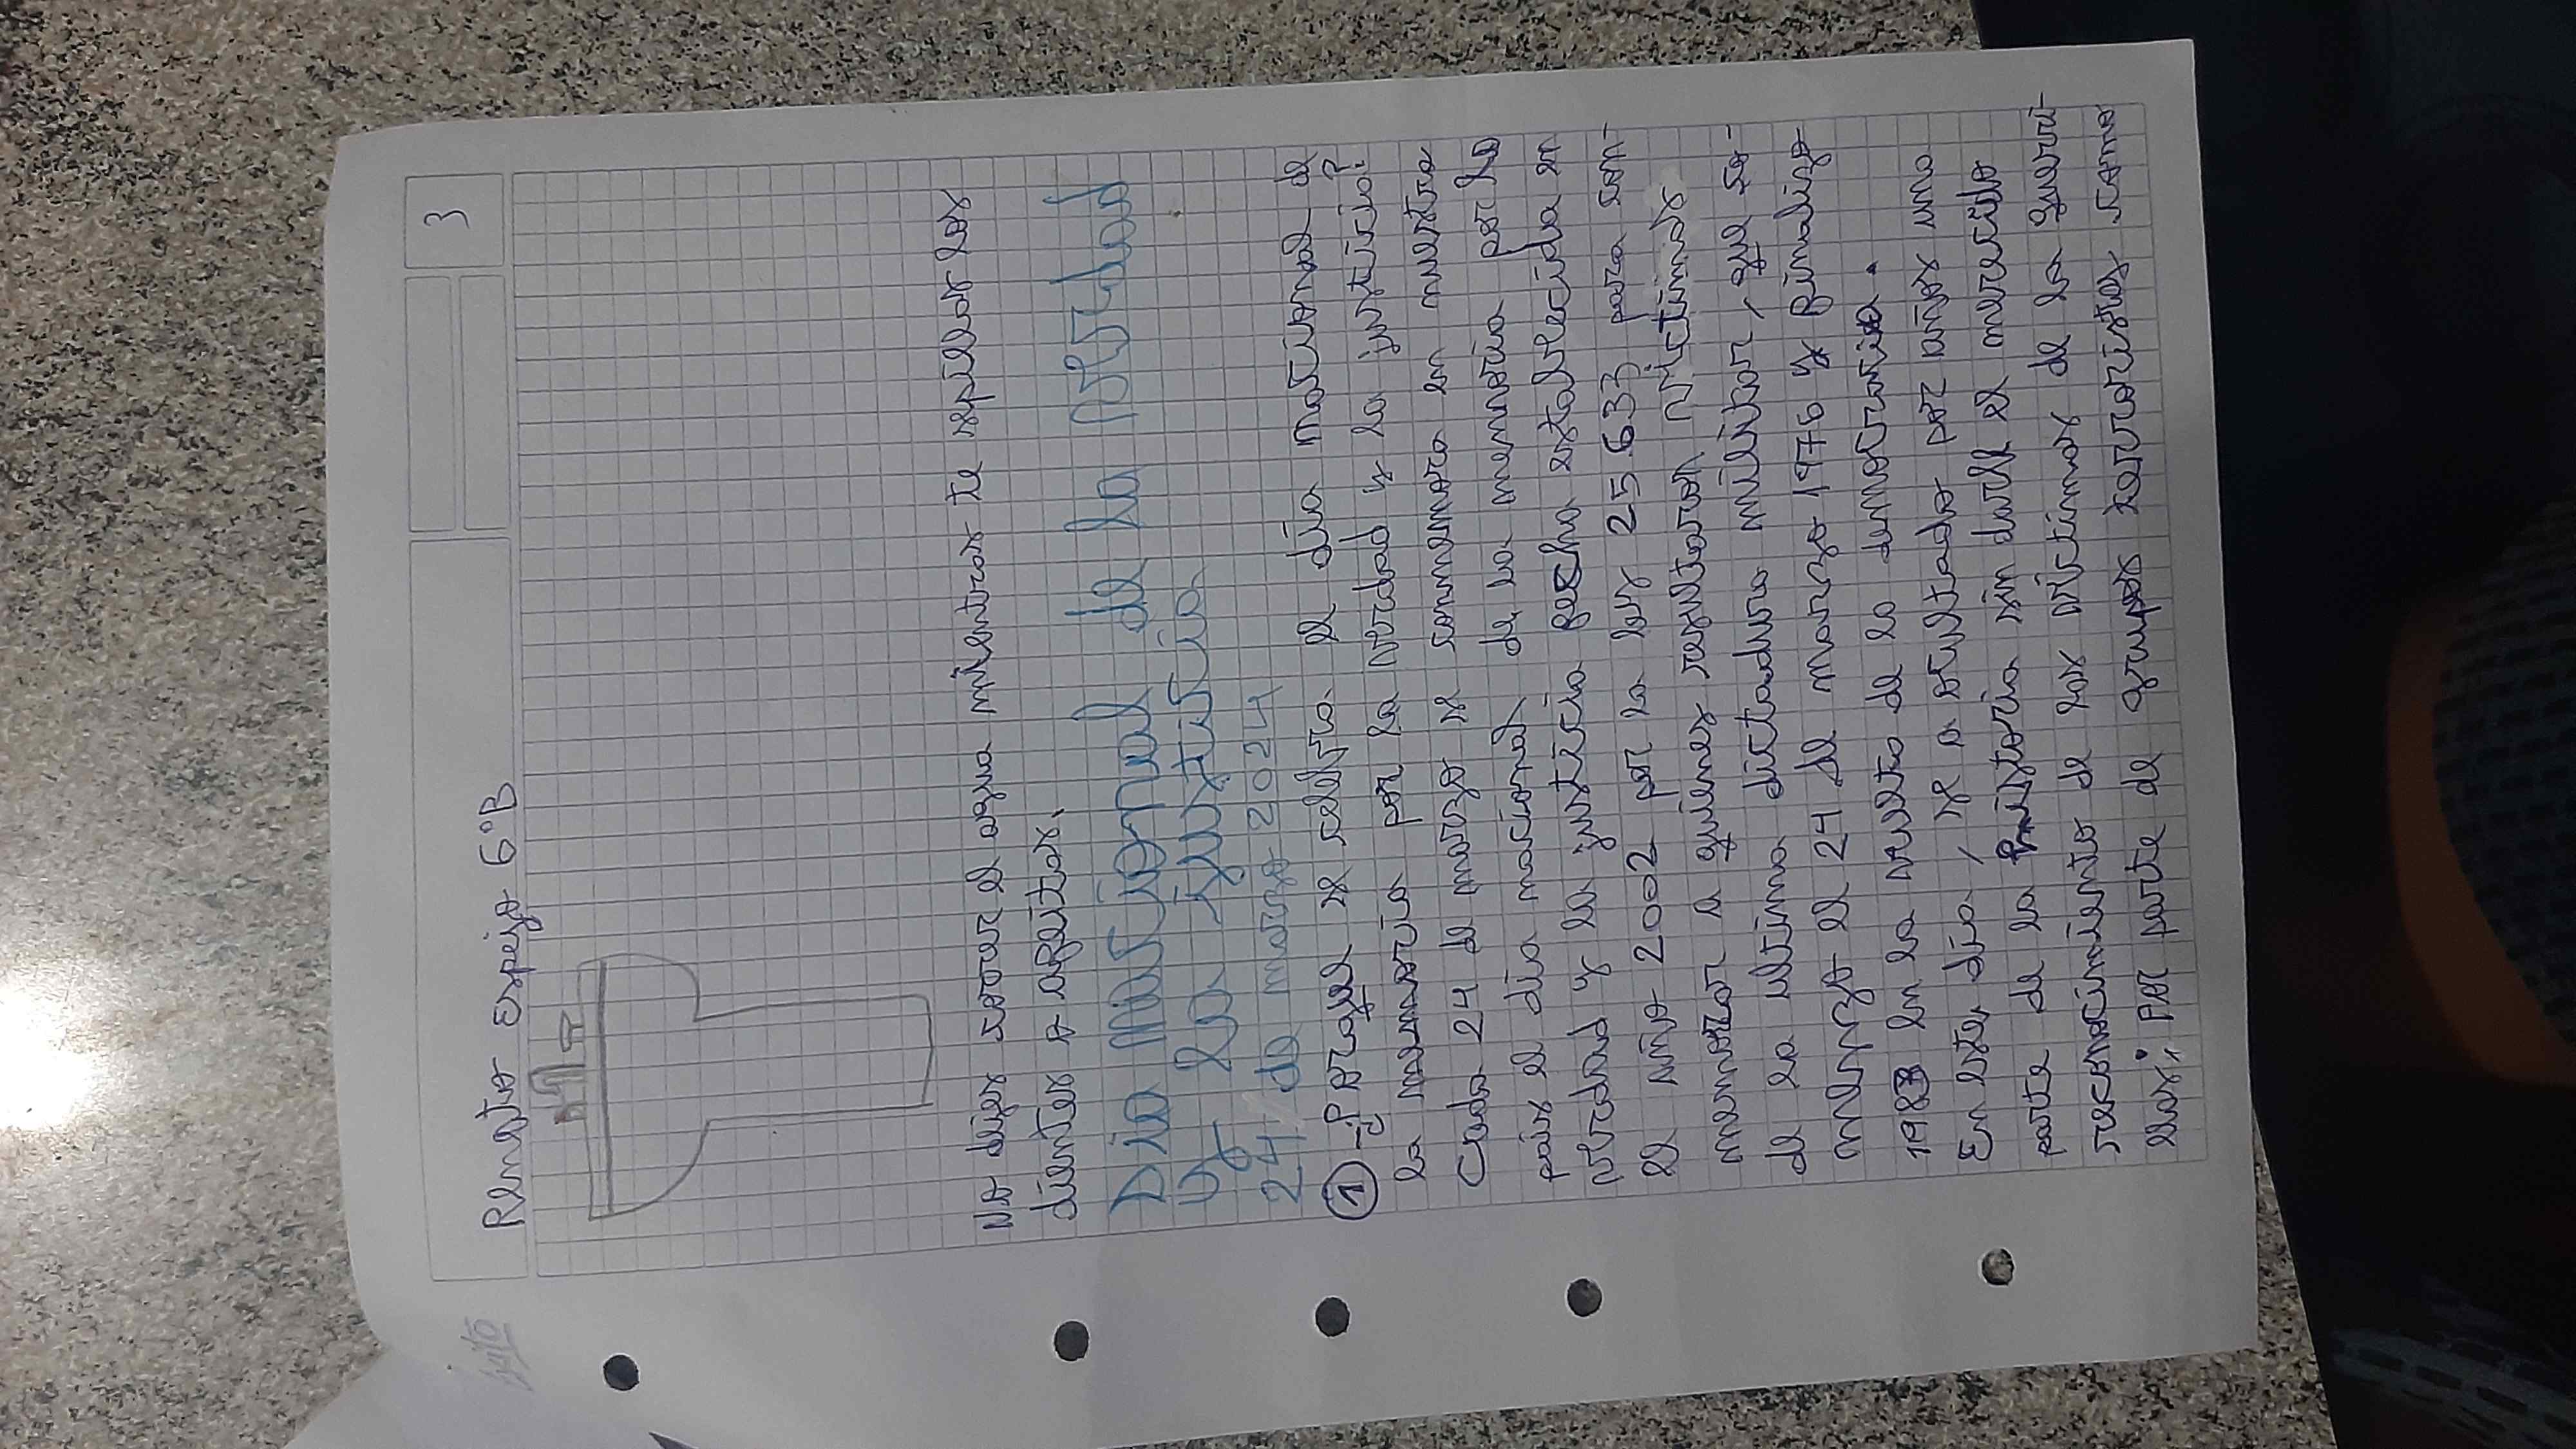 Renato espejo 6°B
3
No dejes correr el agua mientras te cepillas los
dientes o afeitas.
Dia nacional de la verdad
y la justicia
24 de marzo 2024
① -¿Porque se celebra el dia nacional de
la memoria por la verdad y la justicia?
Cada 24 de marzo se conmemora en nuestro
pais el dia nacional de la memoria por la
verdad y la justicia fecha establecida en
el año 2002 por la ley 25633 para con-
memorar a quienes resultaron victimas
de la ultima dictadura militar, que co-
menzo el 24 de marzo 1976 y finalizo
1983 en la vuelta de la democracia.
En este dia, se a ocultado por años una
parte de la historia sin darle el merecido
reconocimiento de las victimas de la guerri-
llas; por parte de grupos terroristas como